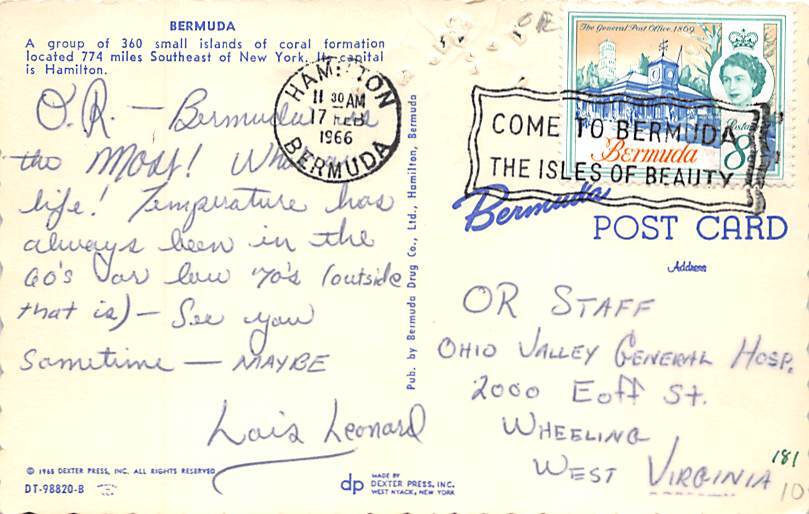 BERMUDA
A group of 360 small islands of coral formation
located 774 miles Southeast of New York. Its capital
is Hamilton.
O.R. — Bermuda is
the MOST! What a
life! Temperature has
always been in the
60's or low 70's (outside
that is) — See you
sometime — MAYBE
Lois Leonard
© 1965 DEXTER PRESS, INC. ALL RIGHTS RESERVED
DT-98820-B
Pub. by Bermuda Drug Co., Ltd., Hamilton, Bermuda
dp
MADE BY
DEXTER PRESS, INC.
WEST NYACK, NEW YORK
HAMILTON
11 30 AM
17 FEB
1966
BERMUDA
OR
The General Post Office, 1869
Postage
8
Bermuda
COME TO BERMUDA
THE ISLES OF BEAUTY
Bermuda
POST CARD
Address
OR STAFF
OHIO VALLEY GENERAL HOSP.
2000 EOFF ST.
WHEELING
WEST VIRGINIA
181
10